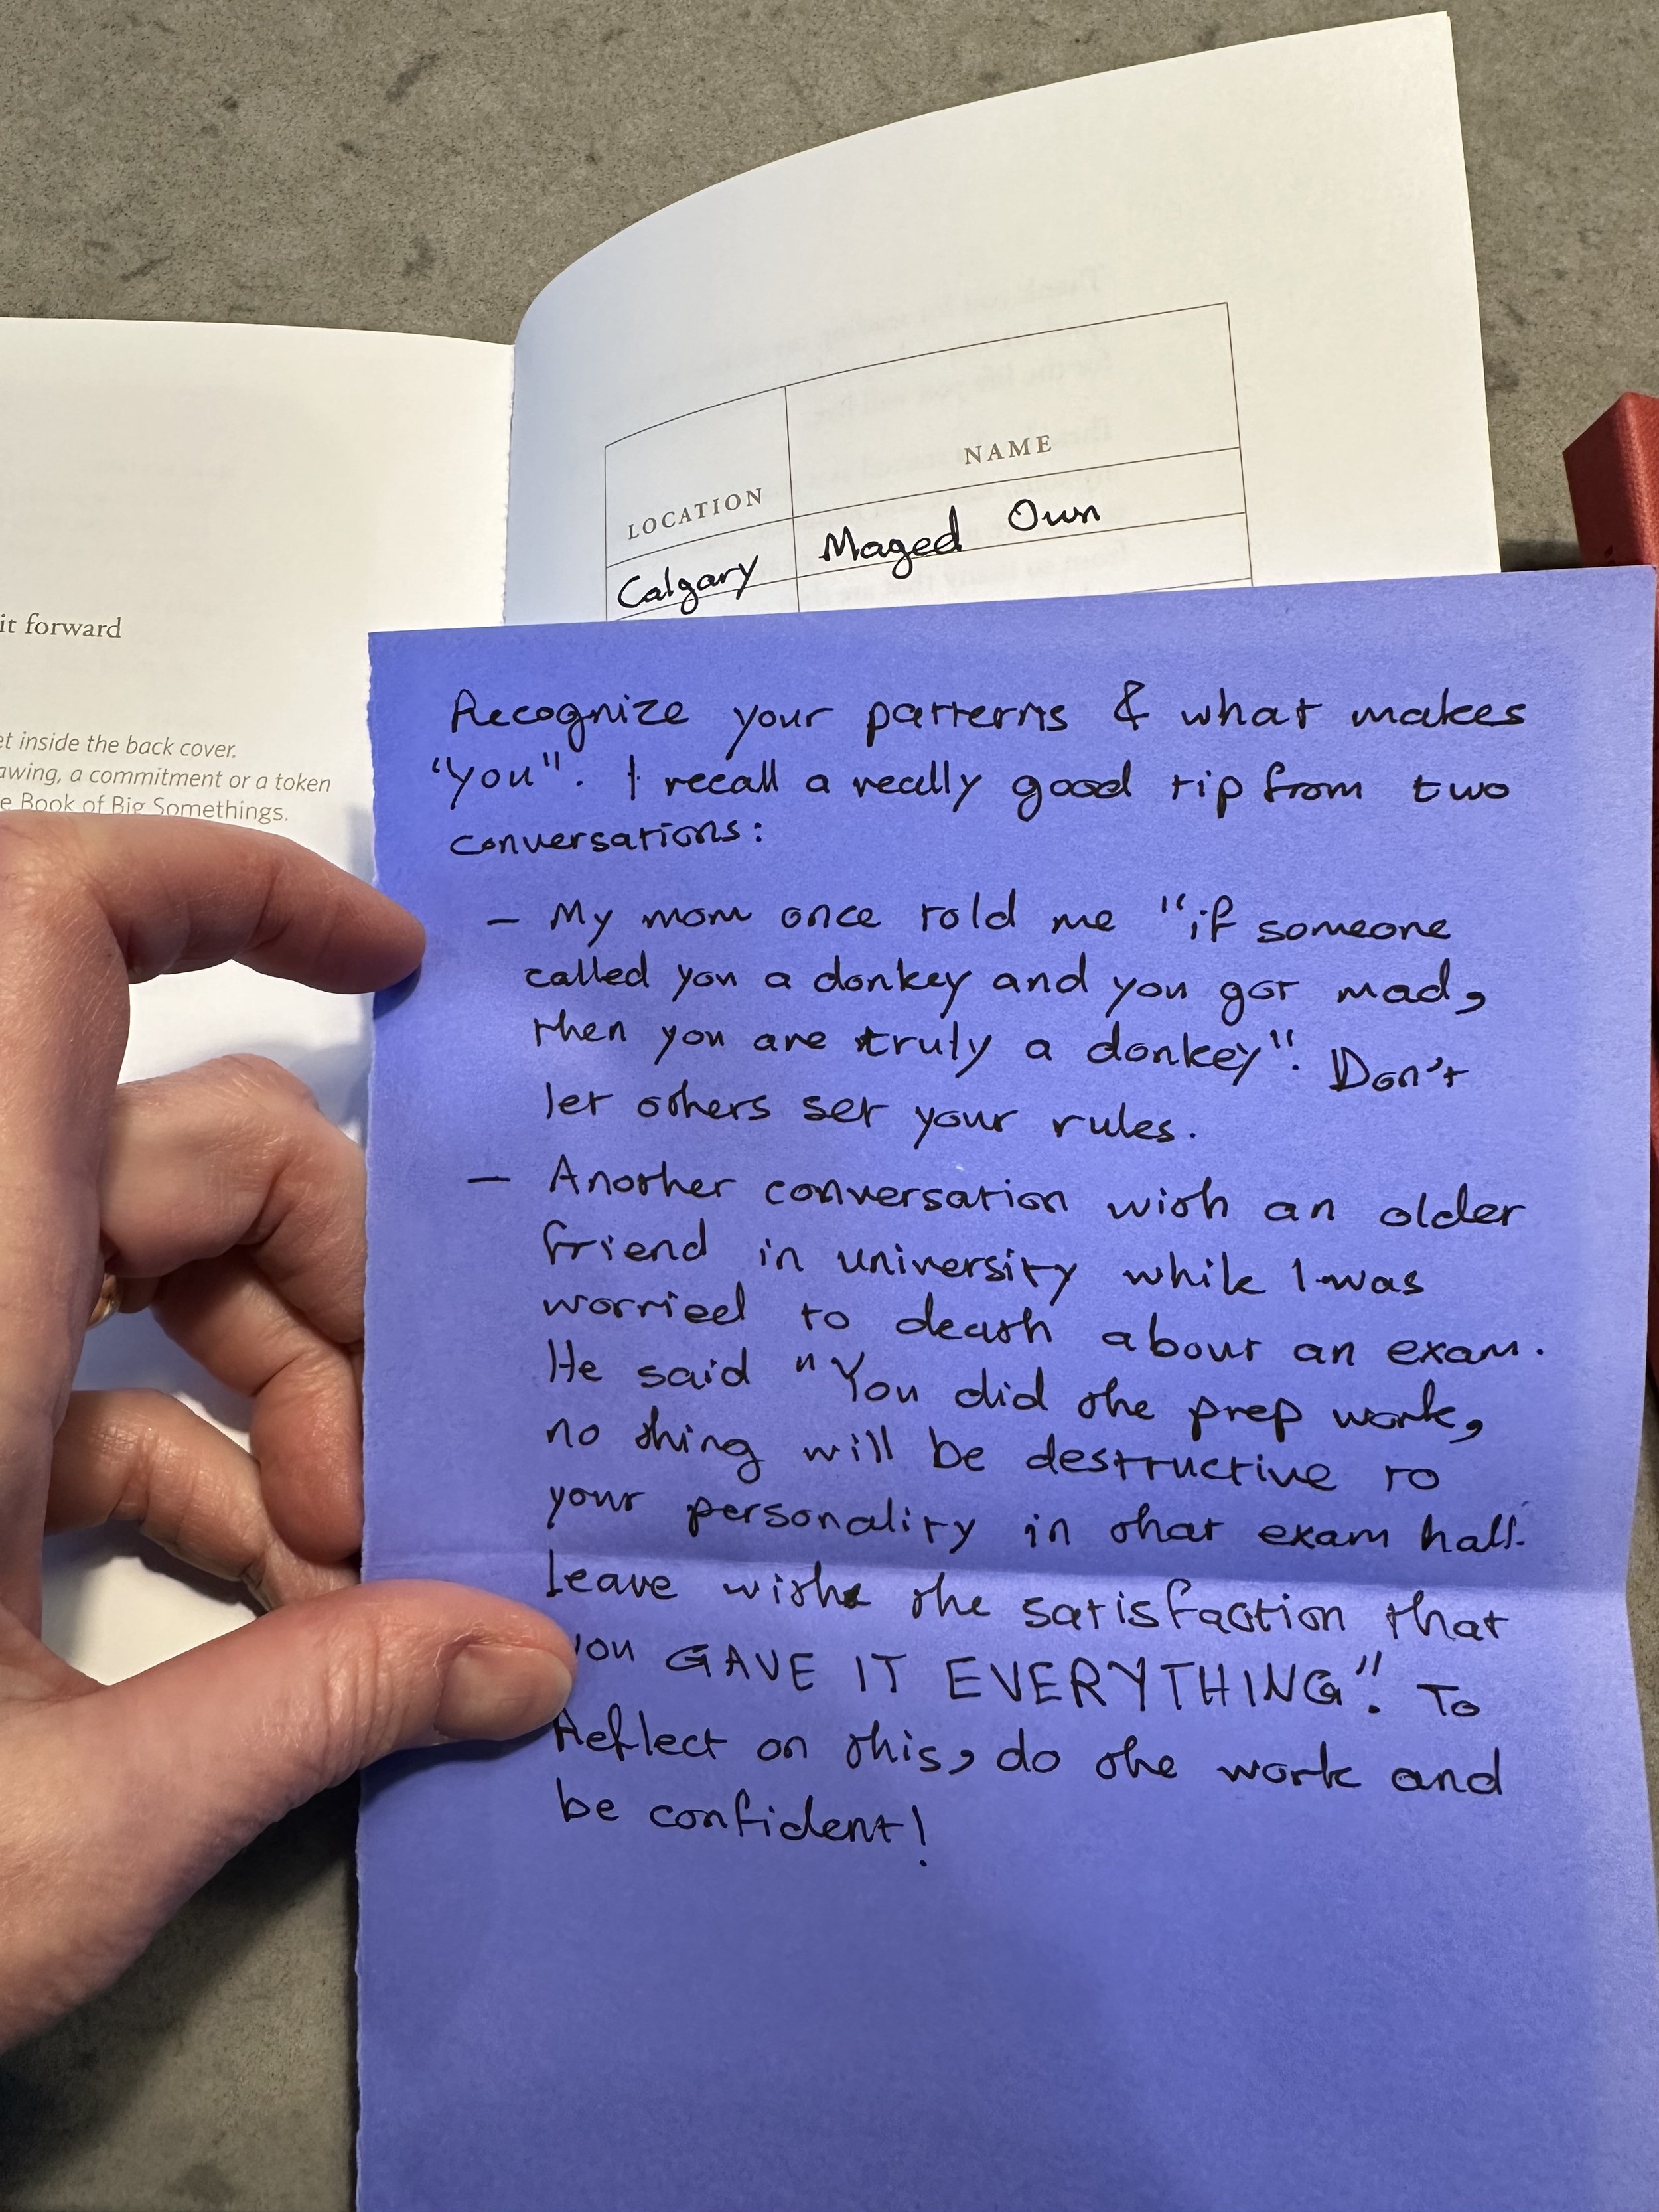 it forward
et inside the back cover.
awing, a commitment or a token
e Book of Big Somethings.
LOCATION NAME
Calgary Maged Own
Recognize your patterns & what makes
"you". I recall a really good tip from two
conversations:
- My mom once told me "if someone
called you a donkey and you got mad,
then you are truly a donkey". Don't
let others set your rules.
- Another conversation with an older
friend in university while I was
worried to death about an exam.
He said "You did the prep work,
no thing will be destructive to
your personality in that exam hall.
Leave with the satisfaction that
you GAVE IT EVERYTHING". To
Reflect on this, do the work and
be confident!